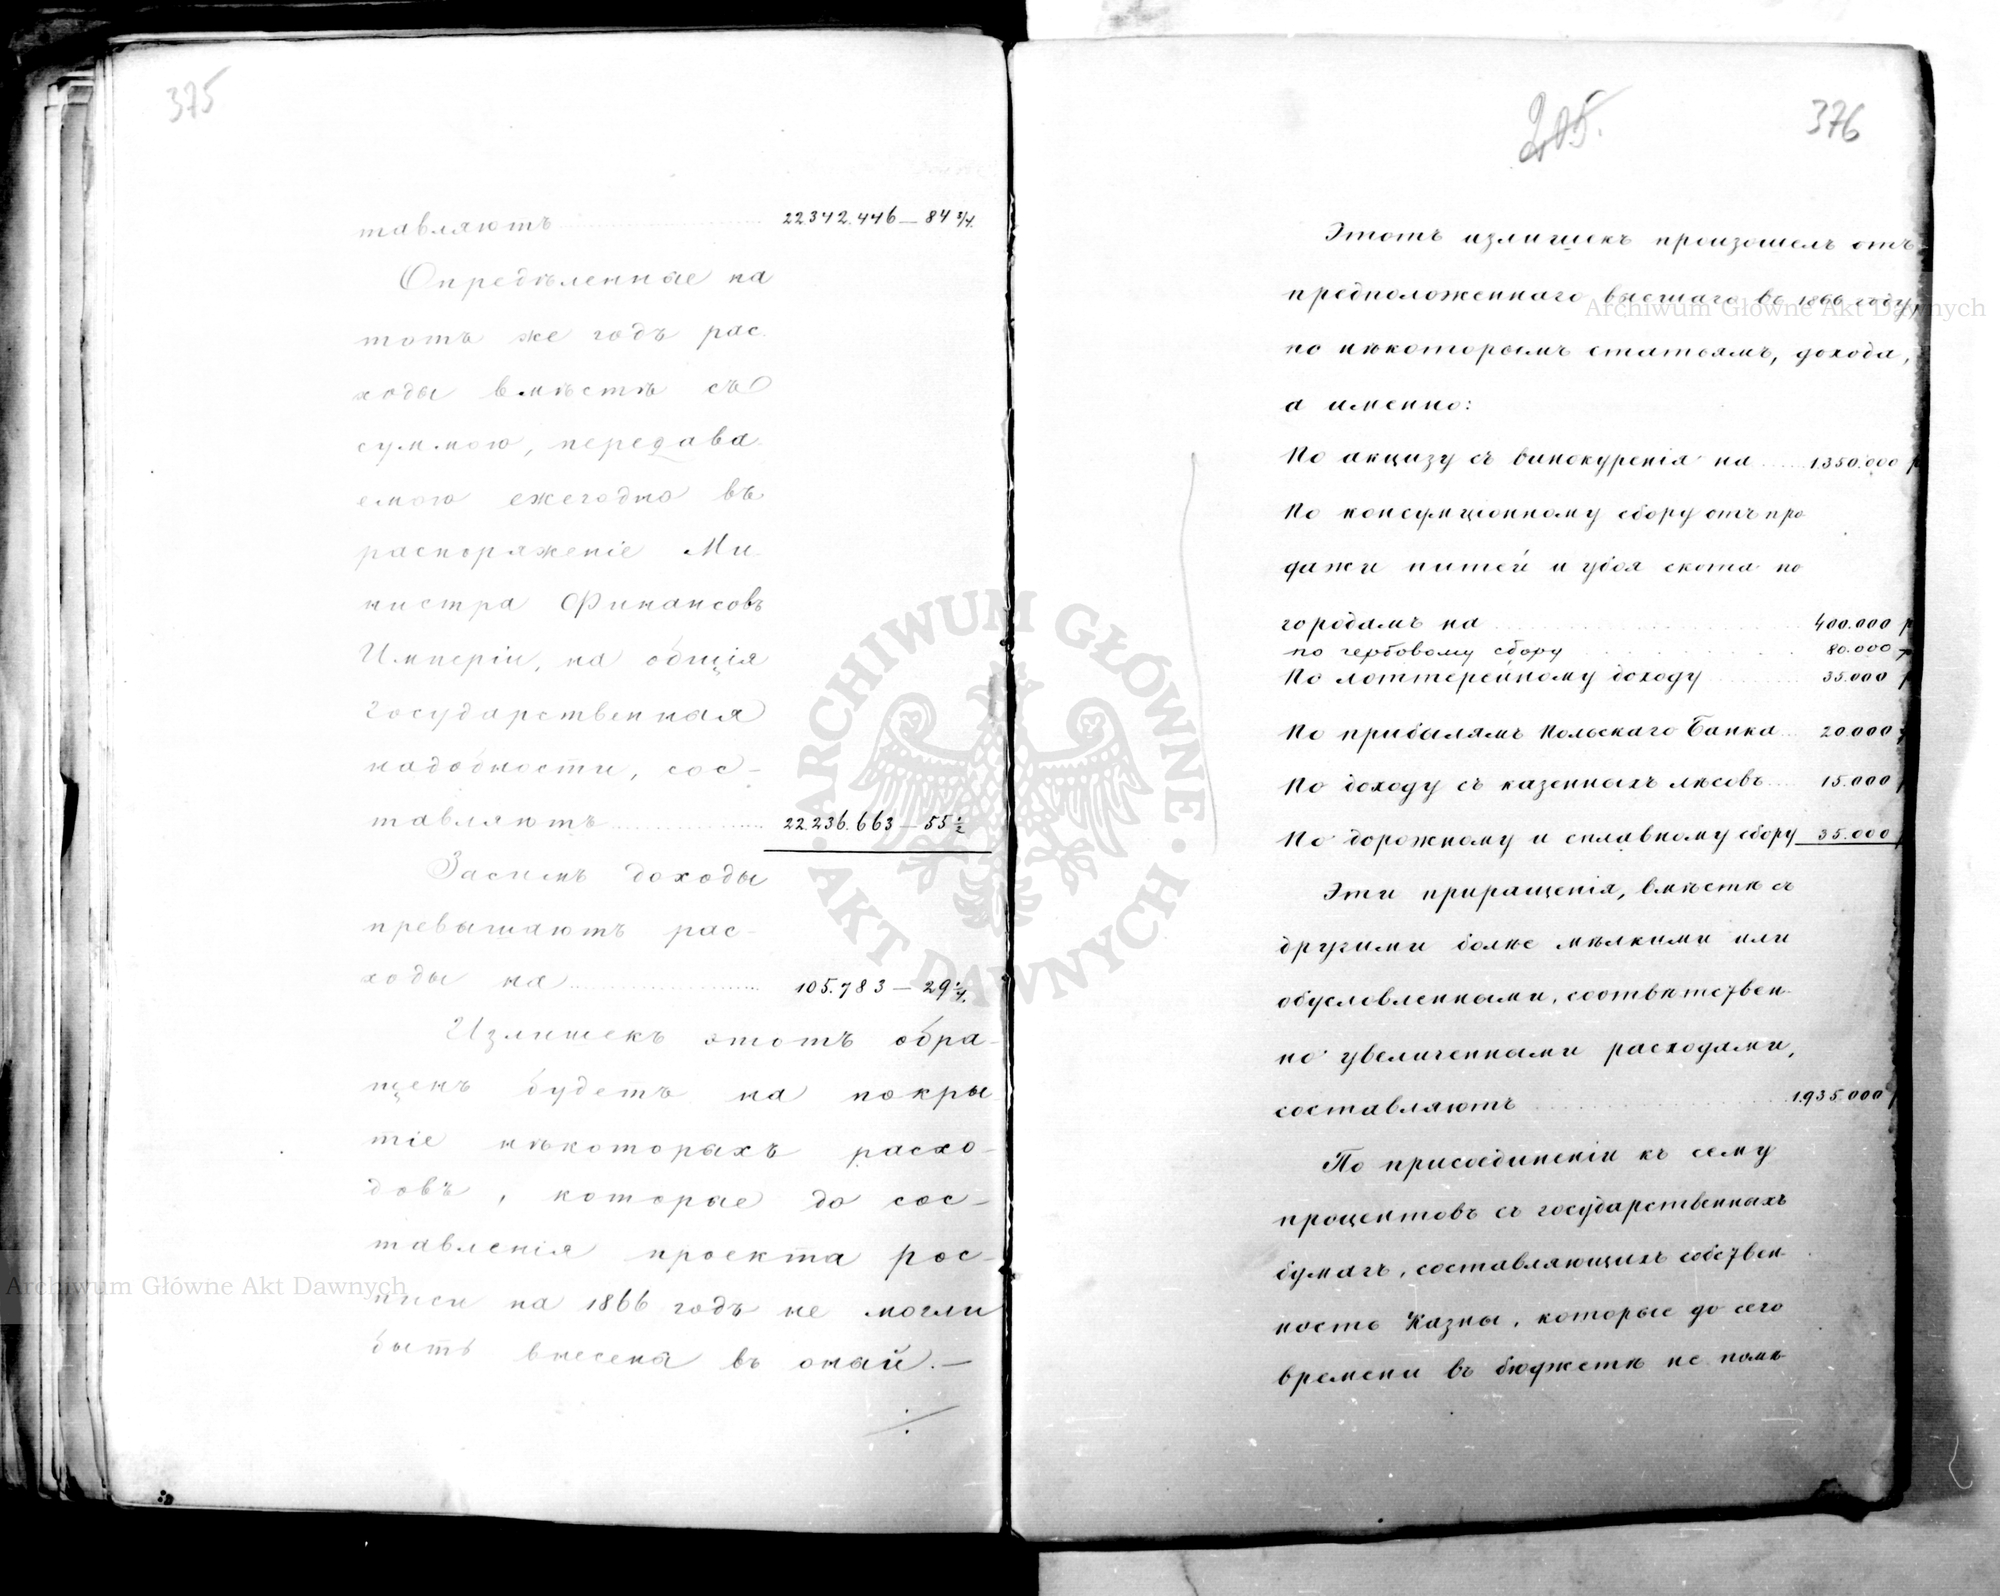 375
тавляютъ 22.342.446 — 84 3/4.
Опредѣленные на
тотъ же годъ рас
ходы вмѣстѣ съ
суммою, передава
емою ежегодно въ
распоряженіе Ми
нистра Финансовъ
Имперіи, на общія
государственныя
надобности, сос-
тавляютъ 22.236.663 — 55 1/2
Засимъ доходы
превышаютъ рас-
ходы на 105.783 — 29 1/4.
Излишекъ этотъ обра-
щенъ будетъ на покры
тіе нѣкоторыхъ расхо-
довъ, которые до сос-
тавленія проекта рос-
писи на 1866 годъ не могли
быть внесены въ оный. —
205.
376
Этотъ излишекъ произошелъ отъ
предположеннаго высшаго въ 1866 году,
по нѣкоторымъ статьямъ, дохода,
а именно:
По акцизу съ винокуренія на 1.350.000 р
По консумціонному сбору отъ про
дажи питей и убоя скота по
городамъ на 400.000 р
по гербовому сбору 80.000 р
По лоттерейному доходу 35.000 р
По прибылямъ Польскаго Банка 20.000 р
По доходу съ казенныхъ лѣсовъ 15.000 р
По дорожному и сплавному сбору 35.000 р
Эти приращенія, вмѣстѣ съ
другими болѣе мѣлкими или
обусловленными, соотвѣтствен-
но увеличенными расходами,
составляютъ 1.935.000 р
По присоединеніи къ сему
процентовъ съ государственныхъ
бумагъ, составляющихъ собствен-
ность Казны, которые до сего
времени въ бюджетѣ не помѣ-
ARCHIWUM GŁÓWNE AKT DAWNYCH
Archiwum Główne Akt Dawnych
Archiwum Główne Akt Dawnych